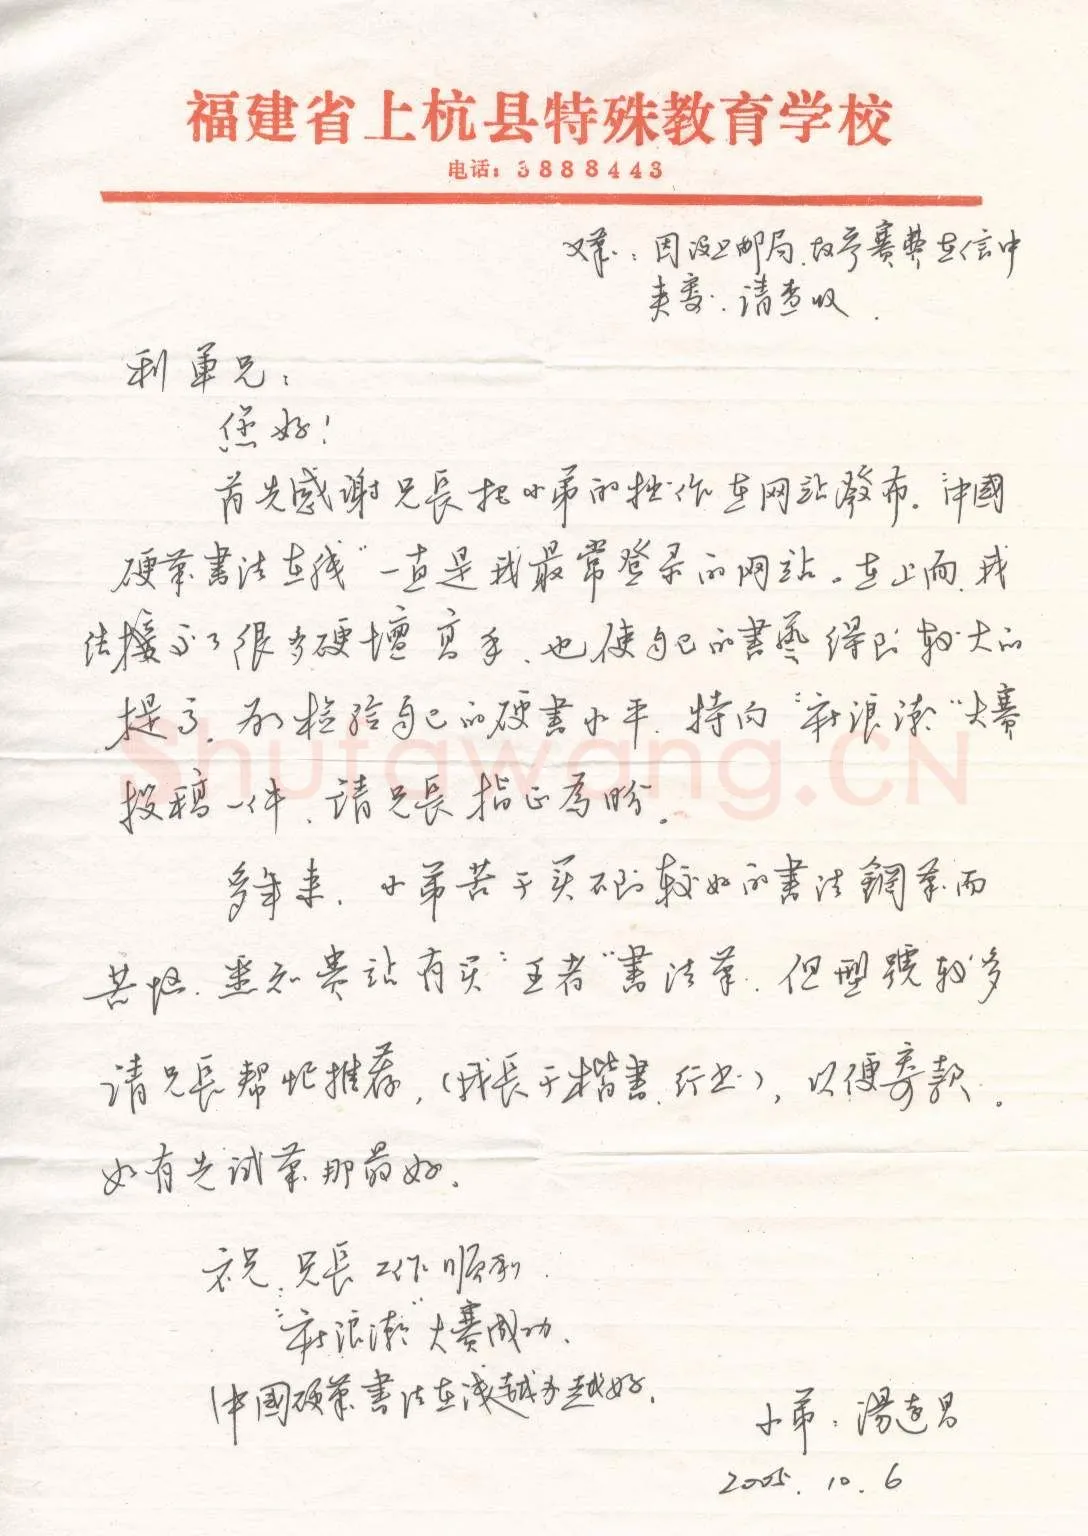 福建省上杭县特殊教育学校
电话：3888443
又稟：因没上邮局，故参赛费在信中
夹寄，请查收．
利軍兄：
您好！
首先感谢兄長把小弟的拙作在网站發布。“中國
硬筆書法在线”一直是我最常登录的网站。在上面，我
结接了很多硬壇高手，也使自己的書藝得到较大的
提高．为检验自己的硬書水平．特向“新浪潮”大赛
投稿一件，请兄長指正為盼。
多年来，小弟苦于买不到较好的書法鋼筆而
苦恼．悉知贵站有买“王者”書法筆．但型號较多
请兄長帮忙推荐，（我長于楷書、行书），以便寄款。
如有先试筆那最好．
祝：兄長工作順利．
“新浪潮”大赛成功．
中國硬筆書法在线越办越好．
小弟：湯连昌
2005．10．6
Shufawang.CN